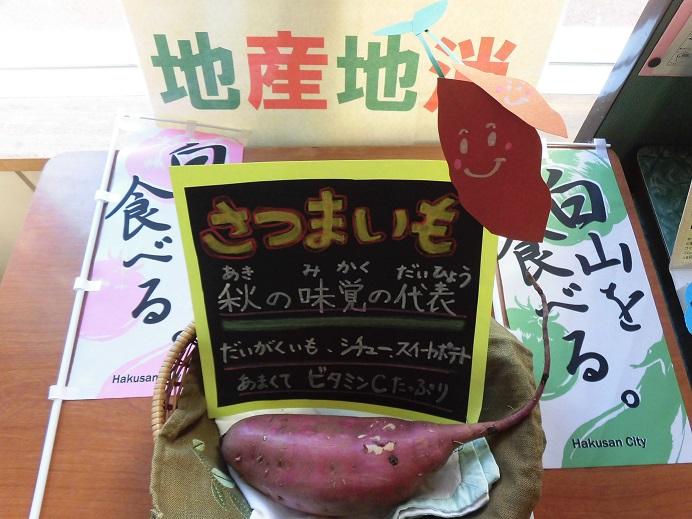 地産地消
さつまいも
あき みかく だいひょう
秋の味覚の代表
だいがくいも、シチュー、スイートポテト
あまくて ビタミンCたっぷり
白
食べる。
Hakusan
白山を
食べる。
Hakusan City